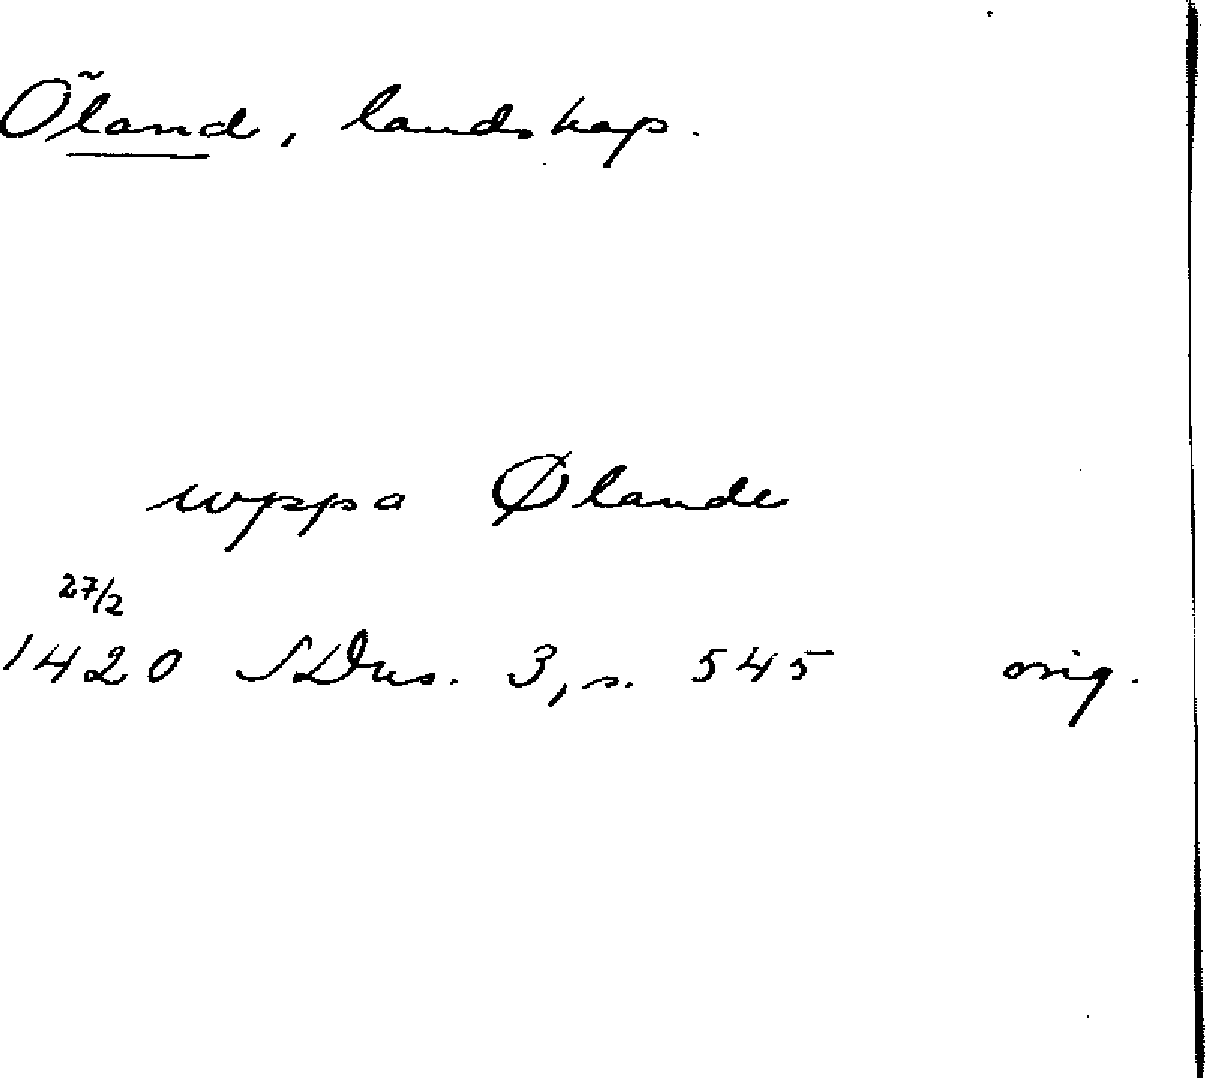 Öland, landskap.
uppa Ølande
27/2
1420 SDns. 3, s. 545 orig.